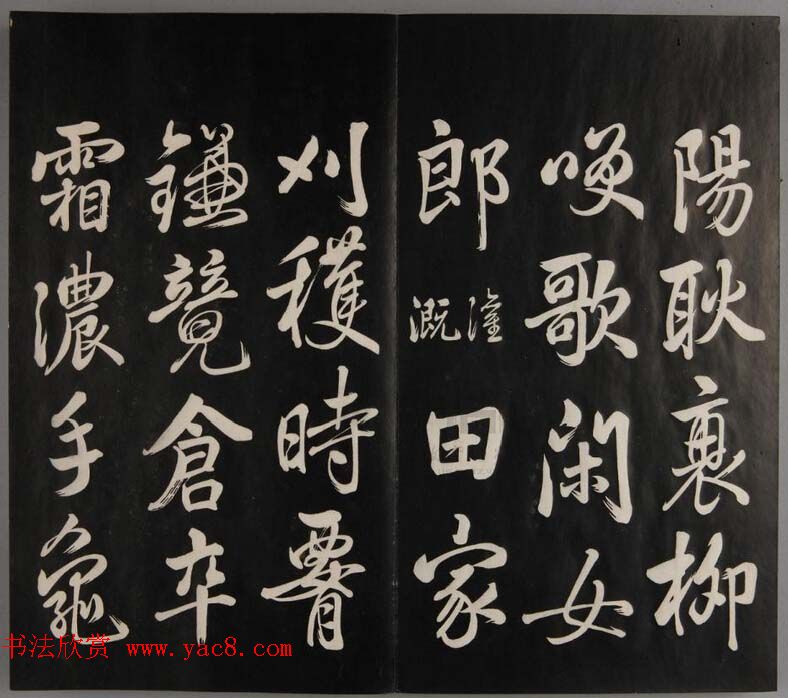 陽耿衰柳
咲歌閑女
郎灌溉田家
刈穫時腰
鎌競倉卒
霜濃手龜
书法欣赏 www.yac8.com